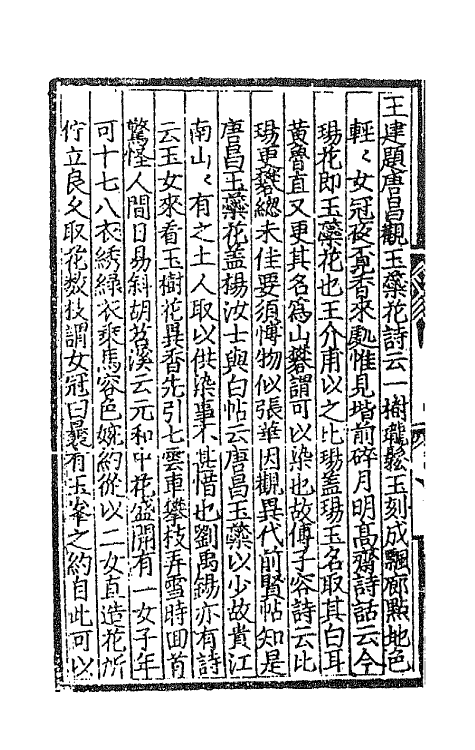 王建題唐昌觀玉藥花詩云一樹瓏鬆玉刻成飄廊點地色
輕〻女冠夜覓香來處惟見堦前碎月明高齋詩話云今
瑒花即玉藥花也王介甫以之比瑒盖瑒玉名取其白耳
黄魯直又更其名爲山礬謂可以染也故傅子容詩云比
瑒更礬緫未佳要須愽物似張華因觀異代前賢帖知是
唐昌玉藥花盖楊汝士與白帖云唐昌玉藥以少故貴江
南山〻有之土人取以供染事不甚惜也劉禹錫亦有詩
云玉女來看玉樹花異香先引七雲車攀枝弄雪時囬首
驚怪人間日易斜胡苕溪云元和中花盛開有一女子年
可十七八衣綉緑衣乘馬容色婉約從以二女直造花所
佇立良久取花数枝謂女冠曰曩有玉峯之約自此可以